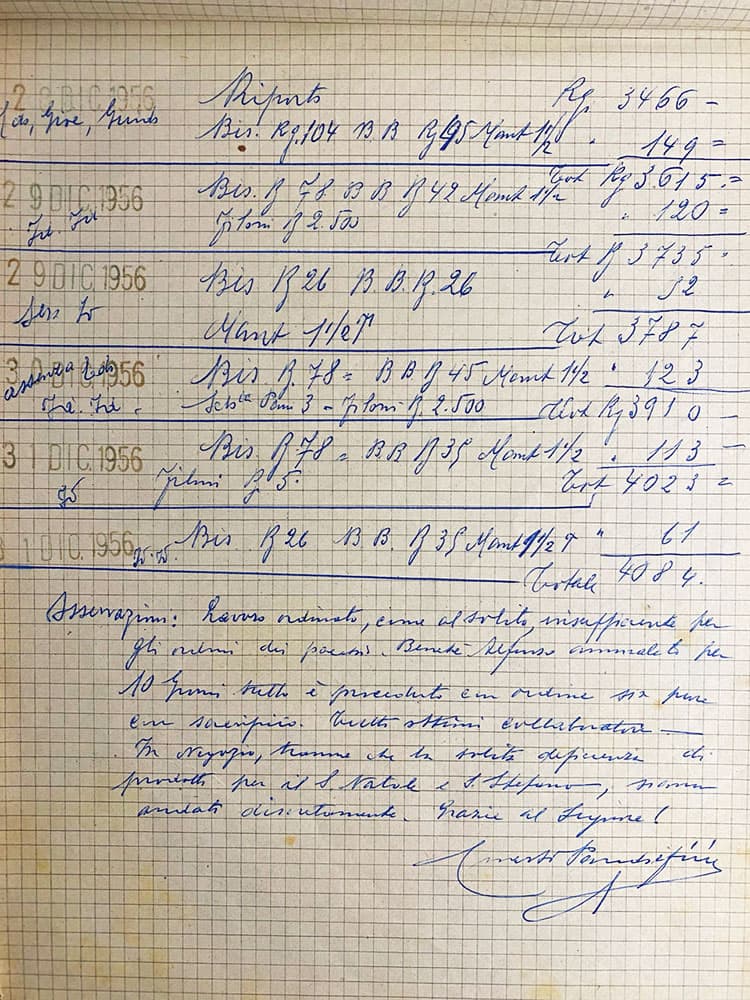 Riporto Kg 3466 -
2 8 DIC. 1956
Bis. Kg. 104 B B Kg 45 Mant 1 1/2 " 149 =
Tot Kg 3615 =
2 9 DIC. 1956 Bis. Kg 78 B B Kg 42 Mant 1 1/2
" 120 =
Id. Id Filoni Kg 2.500
Tot Kg 3735 =
2 9 DIC. 1956 Bis Kg 26 B. B. Kg. 26 " 52
Mant 1 1/2 Tot 3787
3 0 DIC. 1956 Bis. Kg. 78 = B B Kg 45 Mant 1 1/2 " 123
assenza
Id. Id - Pani 3 - Filoni Kg. 2.500 Tot Kg 3910 -
3 1 DIC. 1956 Bis. Kg 78 = B B Kg 35 Mant 1 1/2 " 113 -
Id Filoni Kg 5. Tot 4023 =
3 1 DIC. 1956 Bis Kg 26 B. B. Kg 35 Mant 1 1/2 " 61
Totale 4084.
Osservazioni: Lavoro ordinato, come al solito, insufficiente per
gli ordini dei paesi. Benchè Alfonso ammalato per
10 Giorni tutto è proceduto con ordine sia pure
con sacrificio. Tutti ottimi collaboratori
In Negozio, tranne che la solita deficienza di
prodotti per il S. Natale e S. Stefano, siamo
andati discretamente. Grazie al Signore!
Ernesto